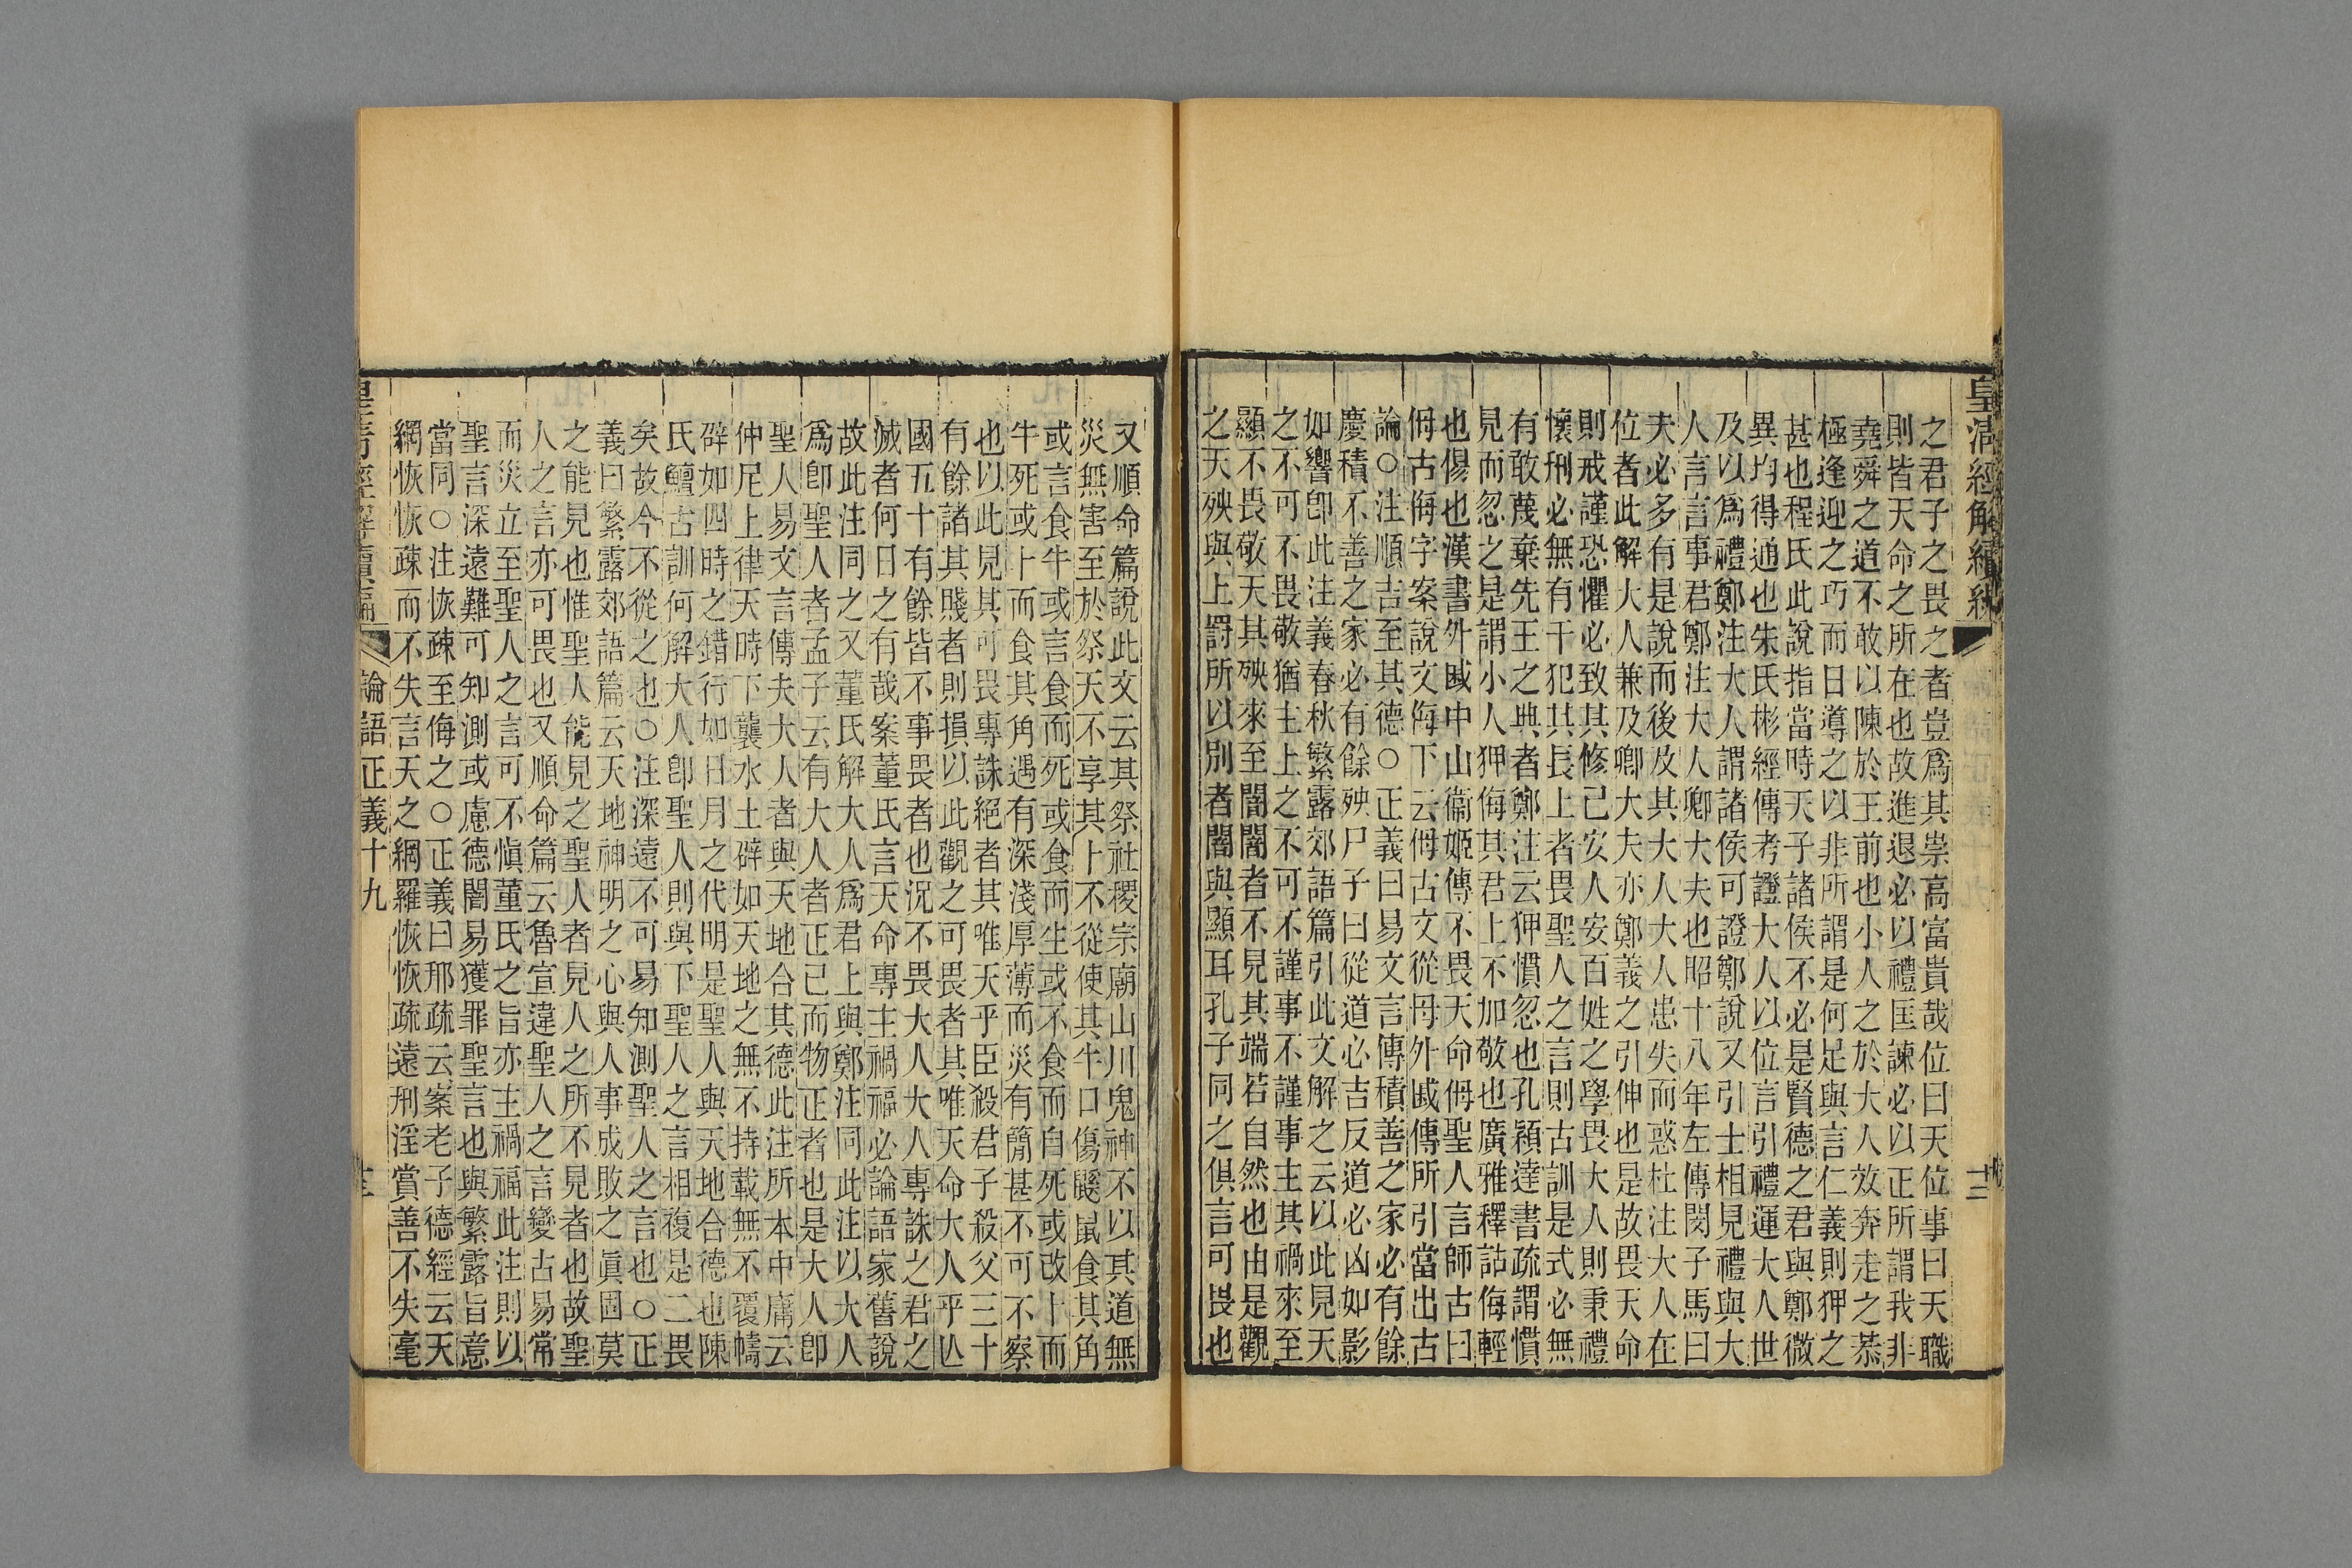 皇清經解續編
之君子之畏之者豈爲其崇高富貴哉位曰天位事曰天職
則皆天命之所在也故進退必以禮匡諫必以正所謂我非
堯舜之道不敢以陳於王前也小人之於大人效奔走之恭
極逢迎之巧而日導之以非所謂是何足與言仁義則狎之
甚也程氏此說指當時天子諸侯不必是賢德之君與鄭微
異均得通也朱氏彬經傳考證大人以位言引禮運大人世
及以爲禮鄭注大人謂諸侯可證鄭說又引士相見禮與大
人言言事君鄭注大人卿大夫也昭十八年左傳閔子馬曰
夫必多有是說而後及其大人大人患失而惑杜注大人在
位者此解大人兼及卿大夫亦鄭義之引伸也是故畏天命
則戒謹恐懼必致其修己安人安百姓之學畏大人則秉禮
懷刑必無有干犯其長上者畏聖人之言則古訓是式必無
有敢蔑棄先王之典者鄭注云狎慣忽也孔穎達書疏謂慣
見而忽之是謂小人狎侮其君上不加敬也廣雅釋詁侮輕
也傷也漢書外戚中山衞姬傳不畏天命侮聖人言師古曰
侮古侮字案說文侮下云㑄古文從母外戚傳所引當出古
論○注順吉至其德○正義曰易文言傳積善之家必有餘
慶積不善之家必有餘殃尸子曰從道必吉反道必凶如影
如響卽此注義春秋繁露郊語篇引此文解之云以此見天
之不可不畏敬猶主上之不可不謹事不謹事主其禍來至
顯不畏敬天其殃來至闇闇者不見其端若自然也由是觀
之天殃與上罰所以別者闇與顯耳孔子同之俱言可畏也
十二
又順命篇說此文云其祭社稷宗廟山川鬼神不以其道無
災無害至於祭天不享其卜不從使其牛口傷鼷鼠食其角
或言食牛或言食而死或食而生或不食而自死或改卜而
牛死或卜而食其角過有深淺厚薄而災有簡甚不可不察
也以此見其可畏專誅絕者其唯天乎臣殺君子殺父三十
有餘諸其賤者則損以此觀之可畏者其唯天命大人乎亾
國五十有餘皆不事畏者也況不畏大人大人專誅之君之
滅者何日之有哉案董氏言天命專主禍福必論語家舊說
故此注同之又董氏解大人爲君上與鄭注同此注以大人
爲卽聖人者孟子云有大人者正已而物正者也是大人卽
聖人易文言傳夫大人者與天地合其德此注所本中庸云
仲尼上律天時下襲水土辟如天地之無不持載無不覆幬
辟如四時之錯行如日月之代明是聖人與天地合德也陳
氏鱣古訓何解大人卽聖人則與下聖人之言相複是二畏
矣故今不從之也○注深遠不可易知測聖人之言也○正
義曰繁露郊語篇云天地神明之心與人事成敗之眞固莫
之能見也惟聖人能見之聖人者見人之所不見者也故聖
人之言亦可畏也又順命篇云魯宣違聖人之言變古易常
而災立至聖人之言可不愼董氏之旨亦主禍福此注則以
聖言深遠難可知測或慮德闇易獲罪聖言也與繁露旨意
當同○注恢疎至侮之○正義曰邢疏云案老子德經云天
網恢恢疎而不失言天之網羅恢恢疏遠刑淫賞善不失毫
論語正義十九